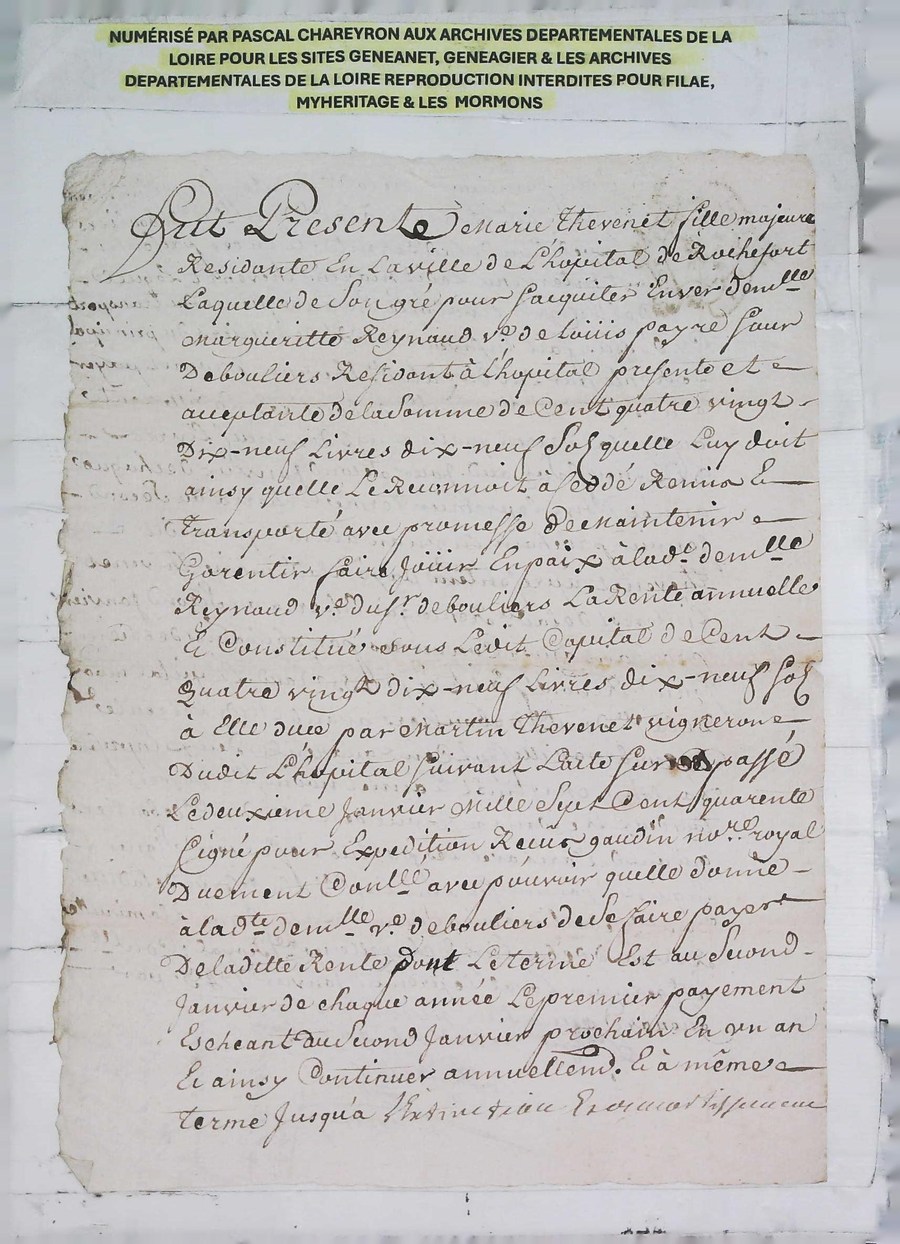 NUMÉRISÉ PAR PASCAL CHAREYRON AUX ARCHIVES DEPARTEMENTALES DE LA
LOIRE POUR LES SITES GENEANET, GENEAGIER & LES ARCHIVES
DEPARTEMENTALES DE LA LOIRE REPRODUCTION INTERDITES POUR FILAE,
MYHERITAGE & LES MORMONS
Fut Presente Marie Thevenet fille majeure
Residante En Laville de L'hopital de Rochefort
Laquelle de Son gré pour Sacquiter Enver demlle
Margueritte Reynaud ve de loüis payre Sieur
Debouliers Residant à lhopital presente et
acceptante de la Somme de Cent quatre vingt
Dix-neuf Livres dix-neuf Sols quelle Luy doit
ainsy quelle Le Reconnoit à Ceddé Remis Et
transporté avec promesse de Maintenir
Garentir faire Joüir En paix à lad. demlle
Reynaud ve du Sr. debouliers La Rente annuelle
Et Constitué sous Ledit Capital de Cent
quatre vingt dix-neuf Livres dix-neuf Sols
à Elle düe par Martin Thevenet vigneron
Dudit L'hopital Suivant L'acte Sur passé
Le deuxieme Janvier Mille Sept Cent quarente
Signé pour Expedition Reçus gaudin nore royal
Duement Conllé avec pouvoir quelle donne
à ladte demlle ve debouliers de Se faire payer
De laditte Rente dont Le terme Est au Second
Janvier de chaque année Le premier payement
Escheant au Second Janvier prochain En un an
Et ainsy Continuer annuellemd. Et à même
terme Jusqu'a l'Extinction Et amortissement